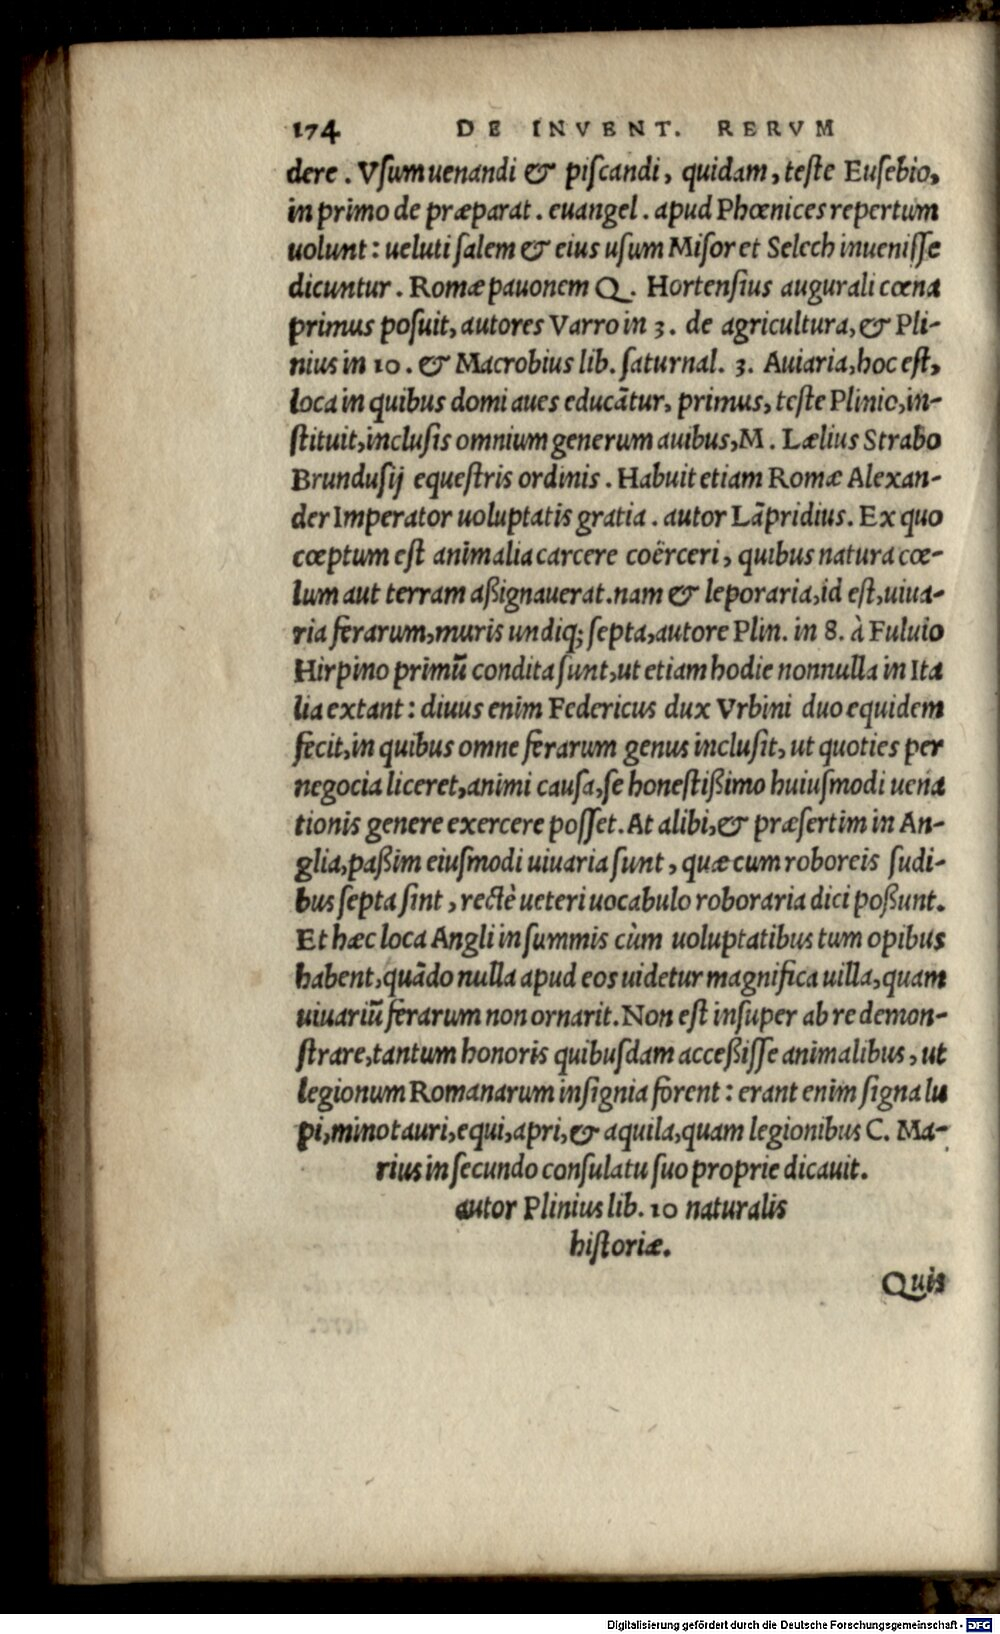 174 DE INVENT. RERVM
dere. Vſum uenandi & piſcandi, quidam, teſte Euſebio,
in primo de præparat. euangel. apud Phœnices repertum
uolunt: ueluti ſalem & eius uſum Miſor et Selech inueniſſe
dicuntur. Romæ pauonem Q. Hortenſius augurali cœna
primus poſuit, autores Varro in 3. de agricultura, & Pli-
nius in 10. & Macrobius lib. ſaturnal. 3. Auiaria, hoc eſt,
loca in quibus domi aues educãtur, primus, teſte Plinio, in-
ſtituit, incluſis omnium generum auibus, M. Lælius Strabo
Brunduſij equeſtris ordinis. Habuit etiam Romæ Alexan-
der Imperator uoluptatis gratia. autor Lãpridius. Ex quo
cœptum eſt animalia carcere coërceri, quibus natura cœ-
lum aut terram aßignauerat. nam & leporaria, id eſt, uiua-
ria ferarum, muris undiq; ſepta, autore Plin. in 8. à Fuluio
Hirpino primũ condita ſunt, ut etiam hodie nonnulla in Ita
lia extant: diuus enim Federicus dux Vrbini duo equidem
fecit, in quibus omne ferarum genus incluſit, ut quoties per
negocia liceret, animi cauſa, ſe honeſtißimo huiuſmodi uena
tionis genere exercere poſſet. At alibi, & præſertim in An-
glia, paßim eiuſmodi uiuaria ſunt, quæ cum roboreis ſudi-
bus ſepta ſint, rectè ueteri uocabulo roboraria dici poßunt.
Et hæc loca Angli in ſummis cùm uoluptatibus tum opibus
habent, quãdo nulla apud eos uidetur magnifica uilla, quam
uiuariũ ferarum non ornarit. Non eſt inſuper ab re demon-
ſtrare, tantum honoris quibuſdam acceßiſſe animalibus, ut
legionum Romanarum inſignia forent: erant enim ſigna lu
pi, minotauri, equi, apri, & aquila, quam legionibus C. Ma-
rius in ſecundo conſulatu ſuo proprie dicauit.
autor Plinius lib. 10 naturalis
hiſtoriæ.
Quis
Digitalisierung gefördert durch die Deutsche Forschungsgemeinschaft - DFG